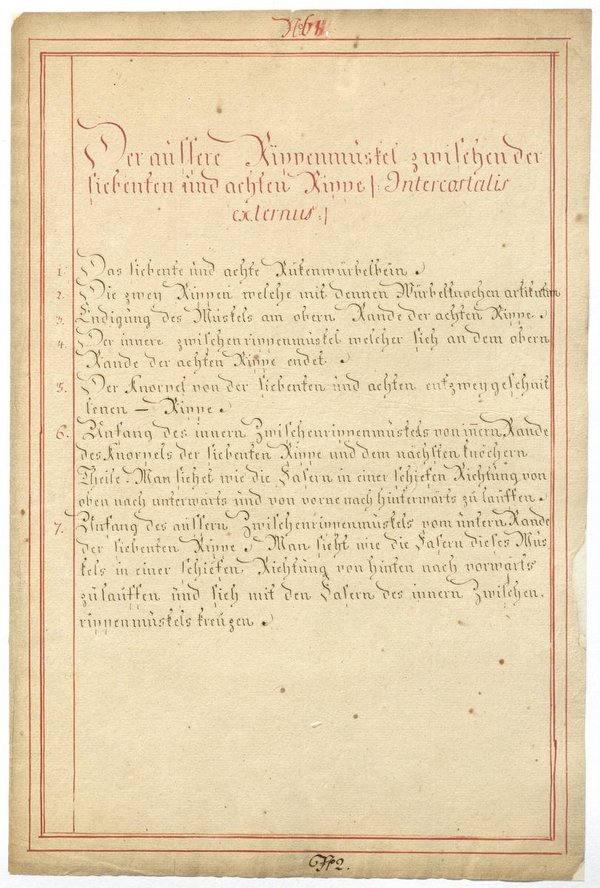 Der äussere Rippenmüskel zwischen der
siebenten und achten Rippe /: Intercostalis
externus :/
1. Das siebente und achte Rükenwürbelbein.
2. Die zwey Rippen welche mit dennen Würbelknochen
3. Endigung des Müskels am obern Rande der achten Rippe.
4. Der innere zwischenrippenmüskel welcher sich an dem obern
Rande der achten Rippe endet.
5. Der Knorpel von der siebenten und achten entzweygeschnit
tenen – Rippe.
6. Anfang des innern Zwischenrippenmüskels von innern Rande
des Knorpels der siebenten Rippe und dem nächsten knöchern
Theile. Man siehet wie die Fasern in einer schiefen Richtung von
oben nach unterwärts und von vorne nach hinterwärts zu lauffen.
7. Anfang des äussern Zwischenrippenmüskels vom untern Rande
der siebenten Rippe. Man sieht wie die Fasern dieses Müs
kels in einer schiefen Richtung von hinten nach vorwärts
zulauffen und sich mit den Fasern des innern Zwischen,
rippenmüskels kreuzen.
№ 2.